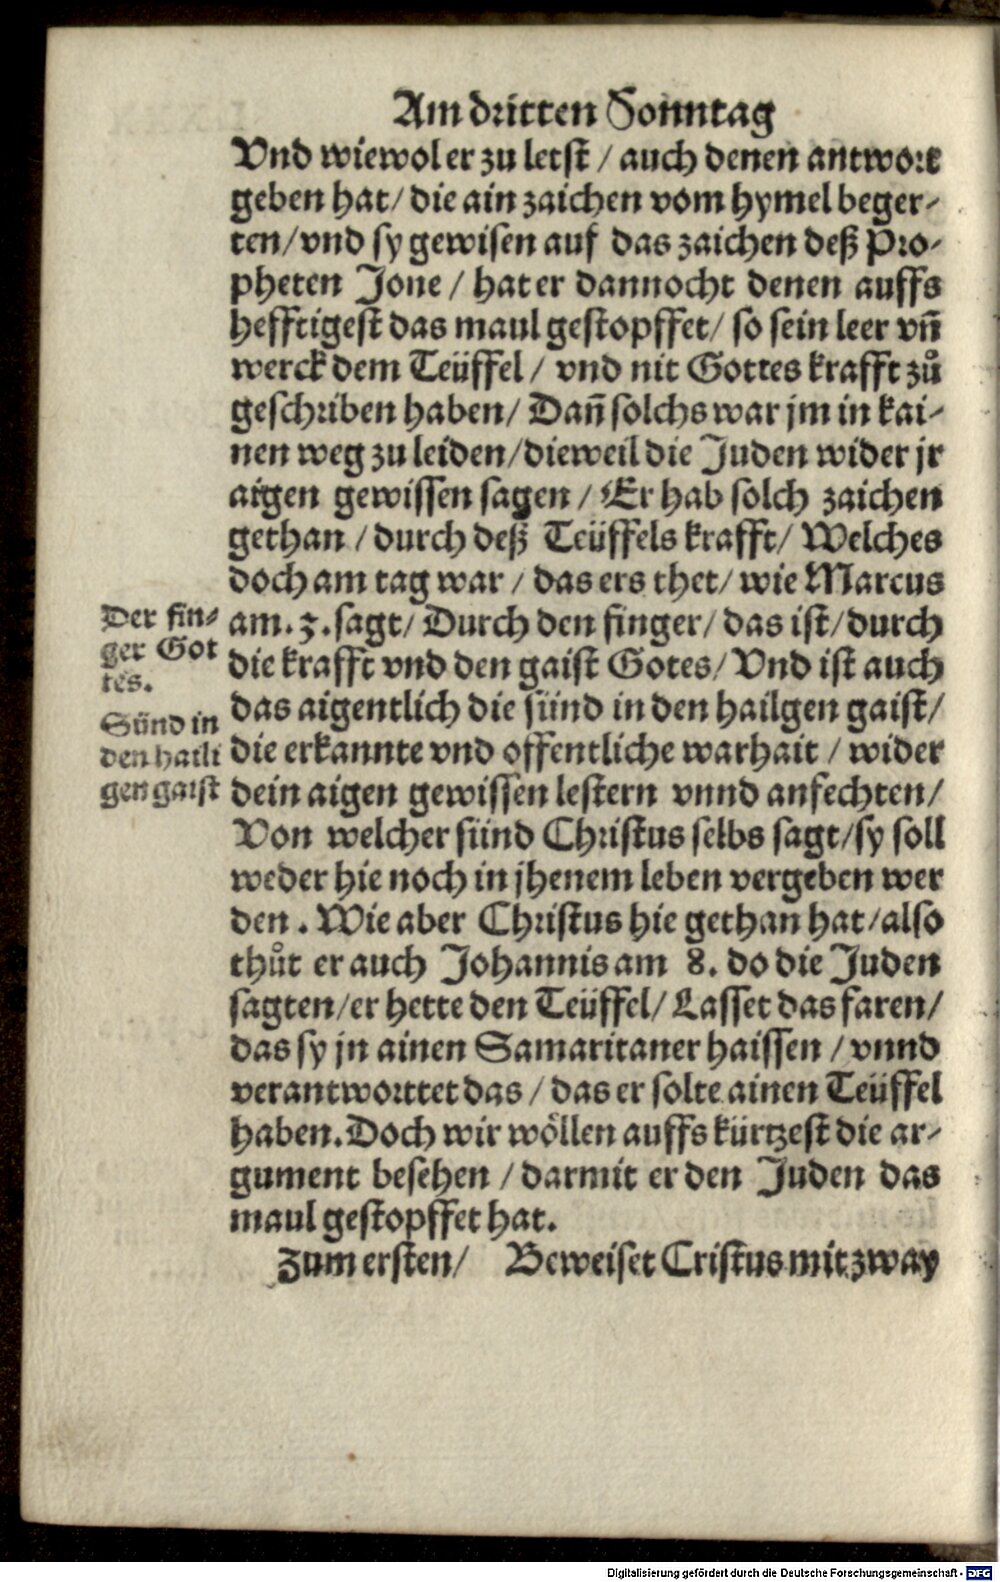 Am dritten Sonntag
Vnd wiewol er zu letst / auch denen antwort
geben hat / die ain zaichen vom hymel beger-
ten / vnd sy gewisen auf das zaichen deß Pro-
pheten Jone / hat er dannocht denen auffs
hefftigest das maul gestopffet / so sein leer vñ
werck dem Teüffel / vnd nit Gottes krafft zů
geschriben haben / Dañ solchs war jm in kai-
nen weg zu leiden / dieweil die Juden wider jr
aigen gewissen sagen / Er hab solch zaichen
gethan / durch deß Teüffels krafft / Welches
doch am tag war / das ers thet / wie Marcus
am . 3 . sagt / Durch den finger / das ist / durch
die krafft vnd den gaist Gotes / Vnd ist auch
das aigentlich die sünd in den hailgen gaist /
die erkannte vnd offentliche warhait / wider
dein aigen gewissen lestern vnnd anfechten /
Von welcher sünd Christus selbs sagt / sy soll
weder hie noch in jhenem leben vergeben wer
den . Wie aber Christus hie gethan hat / also
thůt er auch Johannis am 8. do die Juden
sagten / er hette den Teüffel / Lasset das faren /
das sy jn ainen Samaritaner haissen / vnnd
verantworttet das / das er solte ainen Teüffel
haben. Doch wir wöllen auffs kürtzest die ar-
gument besehen / darmit er den Juden das
maul gestopffet hat.
Zum ersten / Beweiset Cristus mit zway
Der fin-
ger Got
tes.
Sünd in
den haili
gen gaist
Digitalisierung gefördert durch die Deutsche Forschungsgemeinschaft - DFG